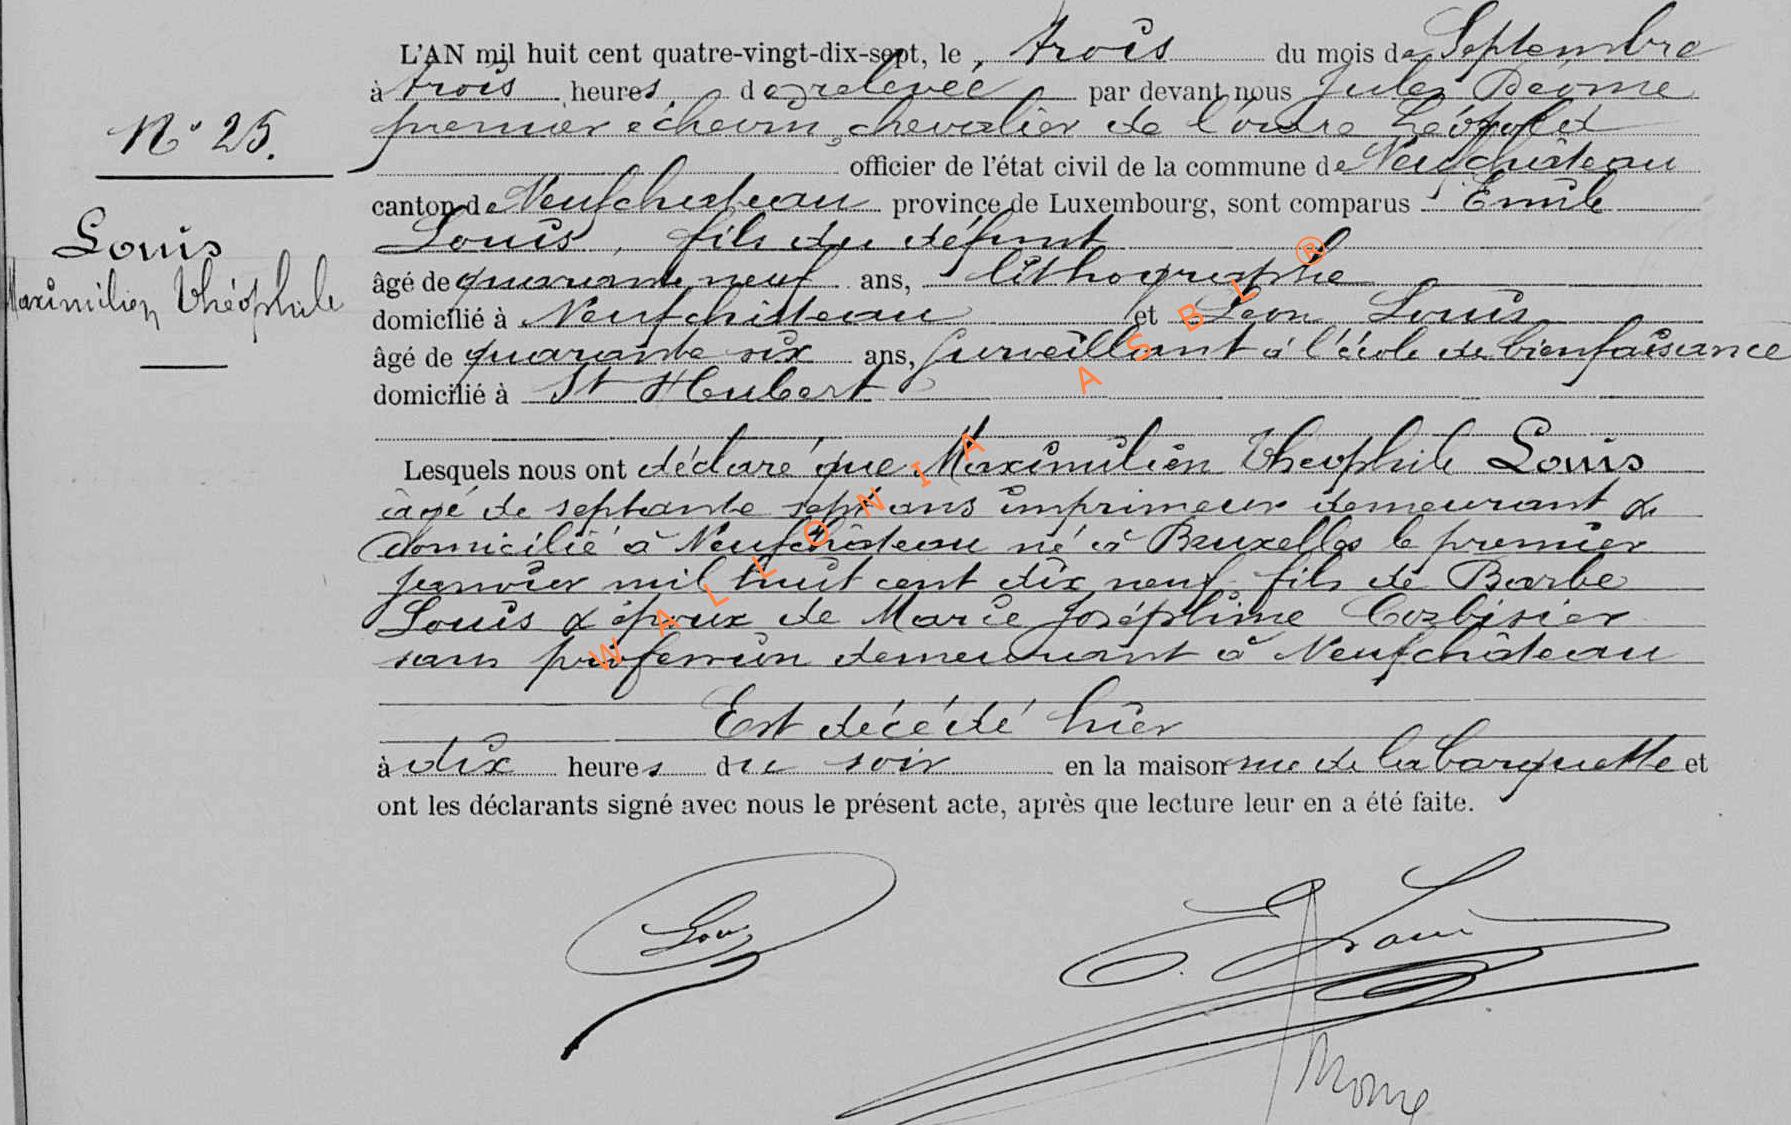 L'AN mil huit cent quatre-vingt-dix-sept, le trois du mois de Septembre
à trois heures de relevée par devant nous Jules
N° 25.
premier echevin, chevalier de l'ordre Léopold
officier de l'état civil de la commune de Neufchâteau
canton de Neufchateau province de Luxembourg, sont comparus Emile
Louis
Maximilien Théophile
Louis, fils du défunt
âgé de quarante neuf ans, lithographe
domicilié à Neufchâteau et Léon Louis
âgé de quarante six ans, surveillant à l'école de bienfaisance
domicilié à St Hubert
Lesquels nous ont déclaré que Maximilien Théophile Louis
âgé de septante sept ans imprimeur demeurant &
domicilié à Neufchâteau né à Bruxelles le premier
janvier mil huit cent dix neuf fils de Barbe
Louis & époux de Marie Joséphine Corbisier
sans profession demeurant à Neufchâteau
Est décédé hier
à dix heures du soir en la maison rue de la barquette et
ont les déclarants signé avec nous le présent acte, après que lecture leur en a été faite.
Louis
E. Louis
WALLONIA ASBL ®